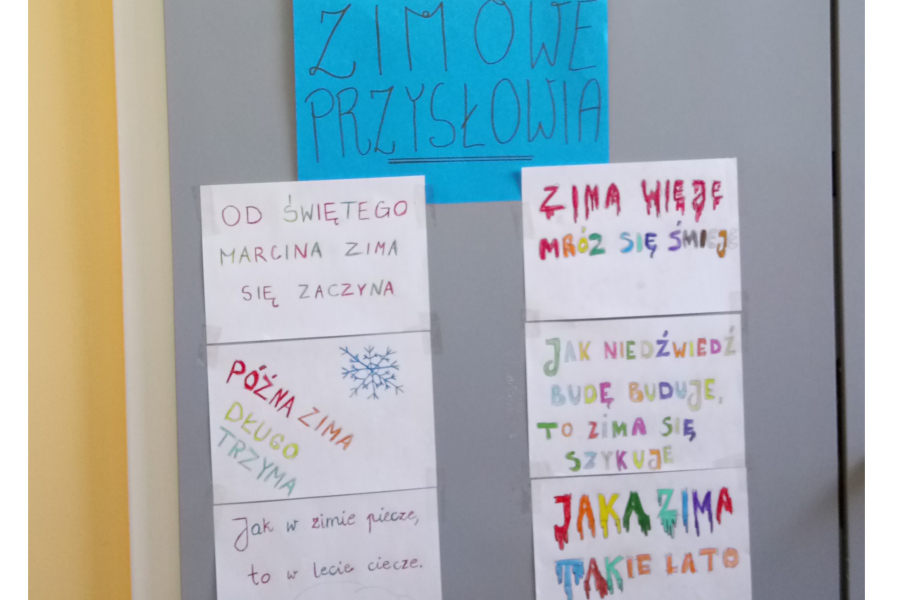 ZIMOWE
PRZYSŁOWIA
OD ŚWIĘTEGO
MARCINA ZIMA
SIĘ ZACZYNA
PÓŹNA ZIMA
DŁUGO
TRZYMA
Jak w zimie piecze,
to w lecie ciecze.
ZIMA WIĘJĘ
MRÓZ SIĘ ŚMIEJE
JAK NIEDŹWIEDŹ
BUDĘ BUDUJE,
TO ZIMA SIĘ
SZYKUJE
JAKA ZIMA
TAKIE ŁATO